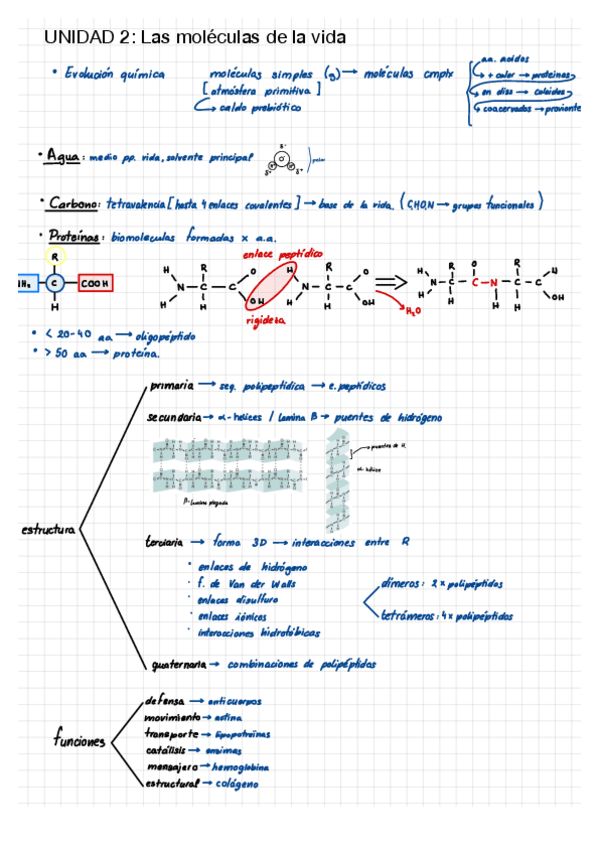 UNIDAD 2: Las moléculas de la vida
• Evolución química moléculas simples (g) → moléculas cmplx
[atmósfera primitiva]
↳ caldo prebiótico
aa. acidos
+ calor → proteinas
en diss → coloides
coacervados →
• Agua: medio pp. vida, solvente principal
δ-
O
H H
δ+ δ+
polar
• Carbono: tetravalencia [hasta 4 enlaces covalentes] → base de la vida. (C,H,O,N → grupos funcionales)
• Proteínas: biomoleculas formadas x a.a.
enlace peptídico
R
NH₂ C COOH
H
H R O H R O H R O R O
N C C N C C N C C N C C
H H OH H H OH H H H H OH
rigideza
H₂O
• < 20-40 aa → oligopéptido
• > 50 aa → proteína.
estructura
primaria → seq. polipeptídica → e. peptídicos
secundaria → α-hélices / lamina β → puentes de hidrógeno
puentes de H.
α-hélice
β-lamina plegada
terciaria → forma 3D → interacciones entre R
• enlaces de hidrógeno
• f. de Van der Walls
• enlaces disulfuro
• enlaces iónicos
• interacciones hidrofóbicas
dímeros: 2 x polipéptidos
tetrámeros: 4 x polipéptidos
quaternaria → combinaciones de polipéptidos
funciones
defensa → anticuerpos
movimiento → actina
transporte → lipoproteínas
catálisis → enzimas
mensajero → hemoglobina
estructural → colágeno